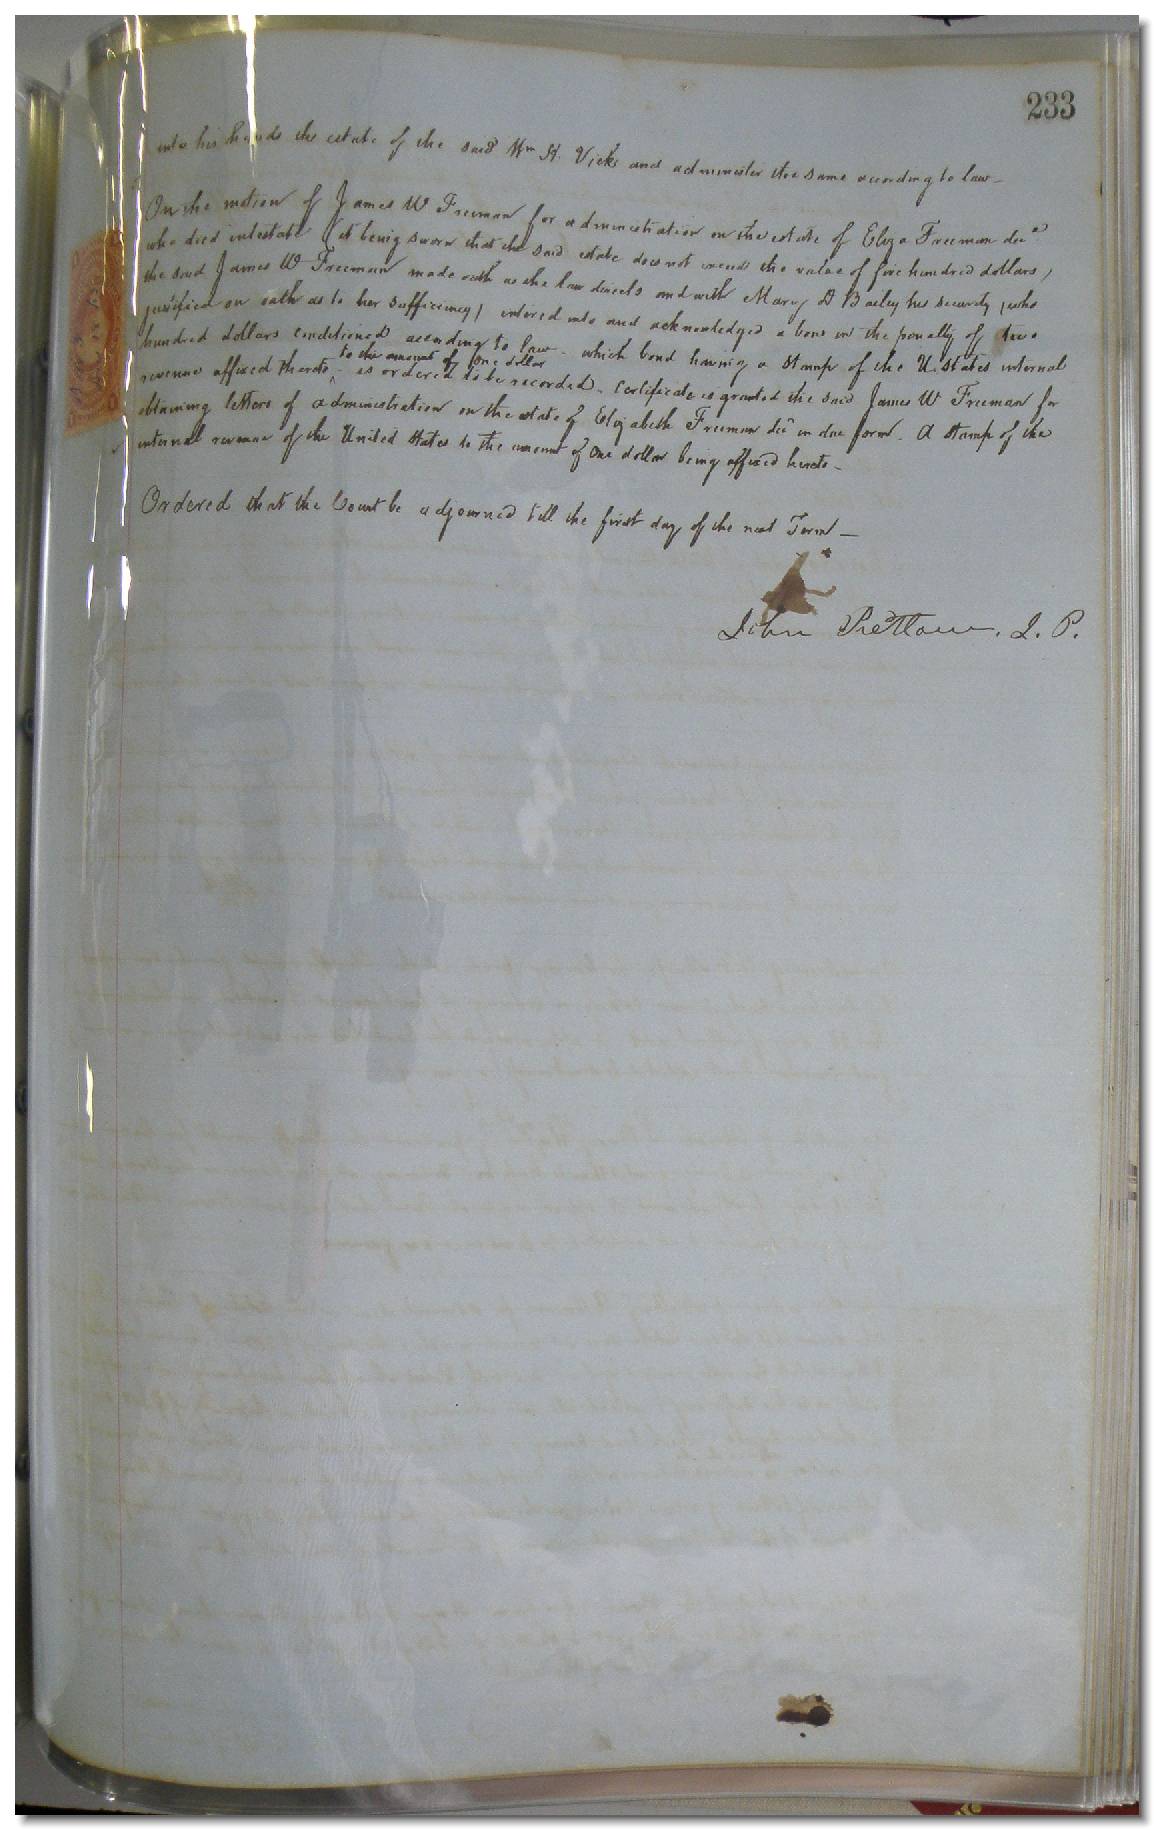 233
into his hands the estate of the said Wm H. Vick and administer the same according to law—
On the motion of James W Freeman for administration on the estate of Eliza Freeman decd
who died intestate (it being sworn that the said estate does not exceed the value of five hundred dollars,
the said James W Freeman made oath as the law directs and with Mary D Bailey his security, (who
justified on oath as to her sufficiency) entered into and acknowledged a bond in the penalty of two
hundred dollars conditioned according to law. which bond having a stamp of the U. States internal
to the amount of One dollar
revenue affixed thereto, ^ is ordered to be recorded. Certificate is granted the said James W Freeman for
obtaining letters of administration on the estate of Elizabeth Freeman decd in due form. A stamp of the
internal revenue of the United States to the amount of One dollar being affixed hereto—
Ordered that the Court be adjourned till the first day of the next Term—
John Pretlow. J. P.